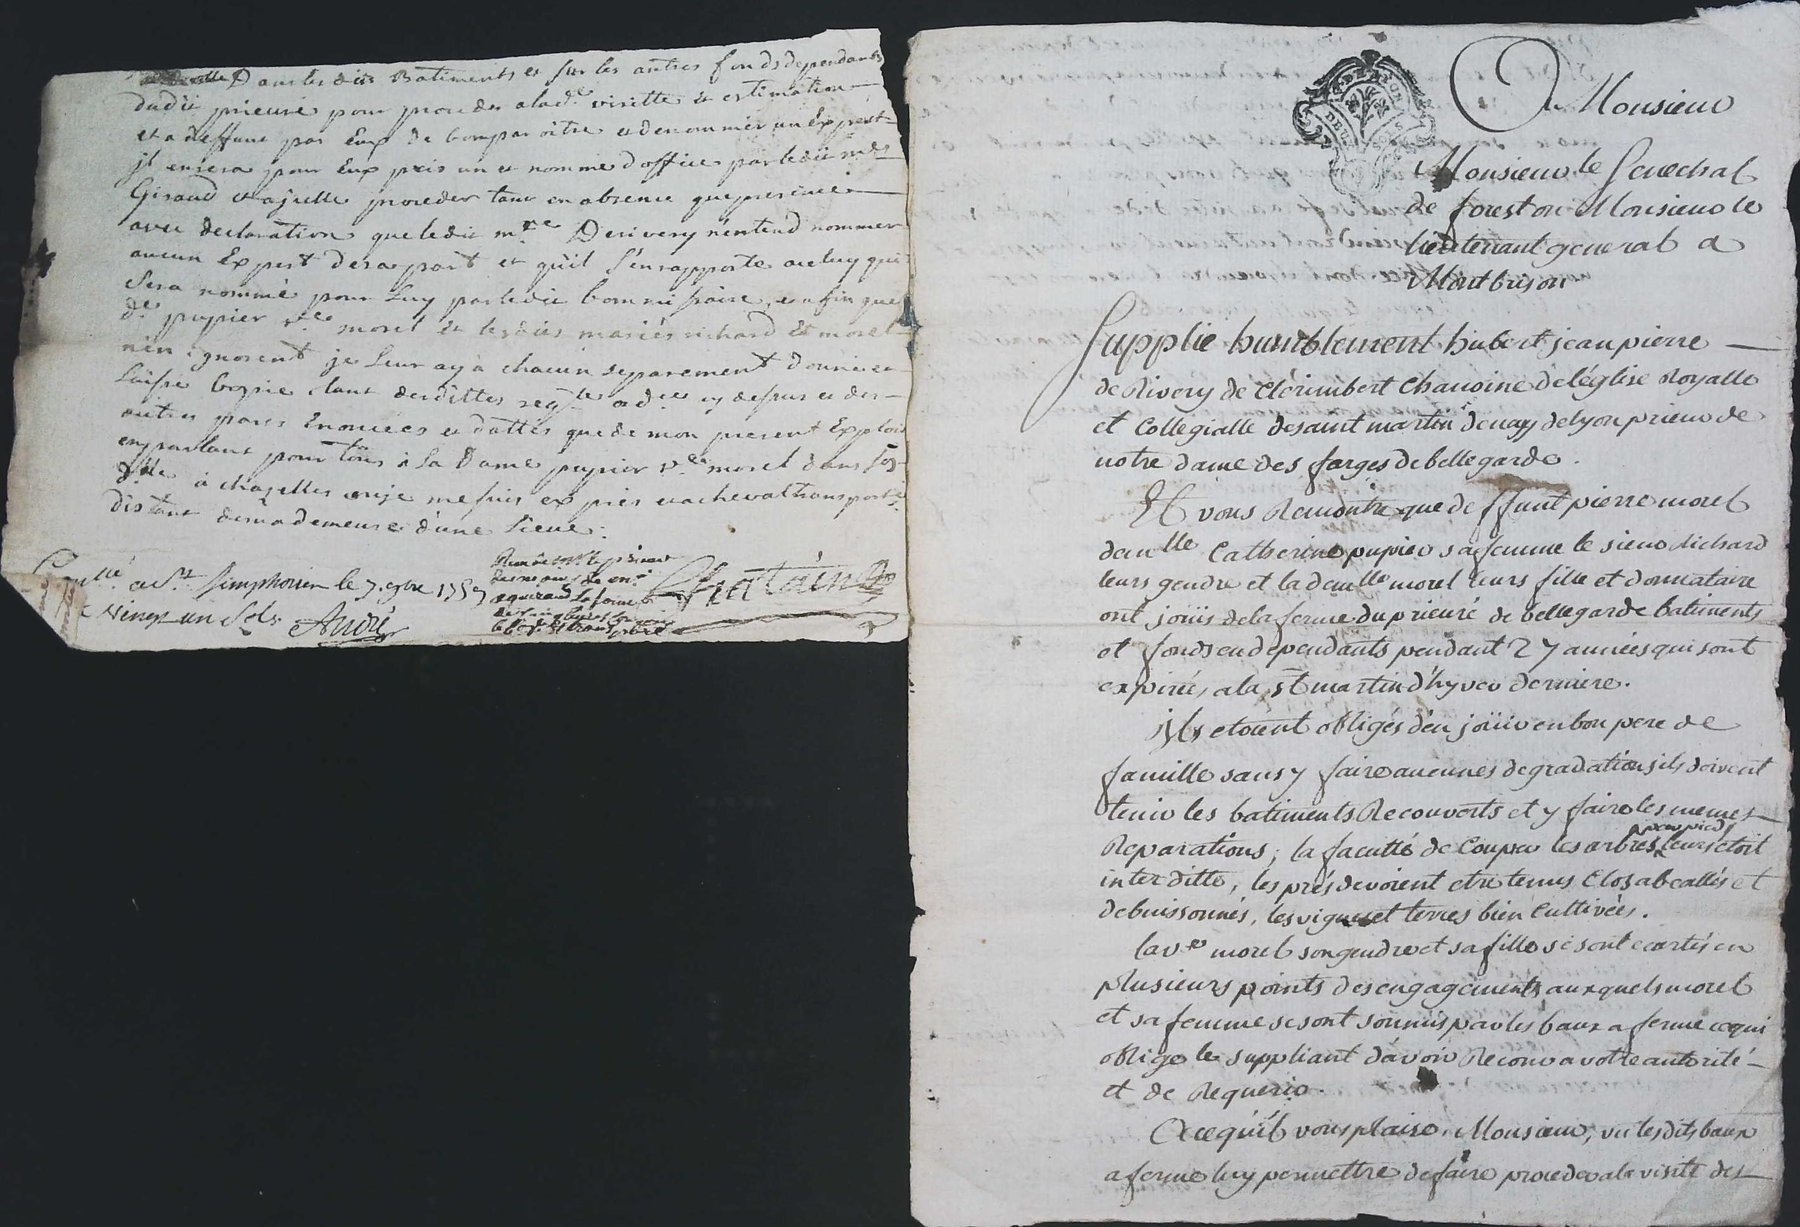 Dans les dits Batiments et sur les autres fonds dependants
dudit prieuré pour proceder a lad.e visitte et estimation
et a deffaut par Eux de Comparoitre et denommer un Expert
jl en sera pour Eux pris un et nommé d'office par ledit
Giraud et a jcelle proceder tant en absence que presence
avec declaration que ledit m.re Derivery n'entend nommer
aucun Expert de sa part et qu'il s'en rapporte a celuy qui
sera nommé pour Luy par ledit Commissaire, et afin que
d.e pupier v.e morel et lesdits mariés richard et morel
n'en ignorent je Leur ay à chacun separement donné et
Laissé Coppie tant desdittes req.te ord.ce cy dessus et des
autres parts Enoncées et dattés que de mon present Exploit
en parlant pour tous à La Dame pupier v.e morel dans son
d.lle à chazelles ou je me suis exprès et a cheval transporté
distant de ma demeure d'une Lieue.
Con.llé a St Simphorien le 7. 9bre 1757
un sols André
Chatain
A Monsieur
Monsieur le Senechal
de forest ou Monsieur le
lieutenant general a
Montbrison
Supplie humblement hubert jean pierre
de Rivery de Clérimbert Chanoine de l'église Royalle
et Collegialle de saint martin d'enay de Lyon prieur de
notre dame des forges de bellegarde.
Et vous Remontre que deffunt pierre morel
dem.lle Catherine pupier sa femme le sieur Richard
leurs gendre et la dem.lle morel leurs fille et donnataire
ont joüis de la ferme du prieuré de bellegarde batiments
et fonds en dependants pendant 27 années qui sont
expirées a la St martin d'hyver derniere.
jls etoient obligés d'en joüir en bon pere de
famille sans y faire aucunes degradations ils doivent
tenir les batiments Recouverts et y faire les menues
Reparations; la faculté de Couper les arbres par pieds leurs etoit
interditte, les prés devoient etre tenus Clos abeallés et
debuissonnés, les vignes et terres bien Cultivées.
la v.e morel son gendre et sa fille se sont ecartés en
plusieurs points des engagements auxquels morel
et sa femme se sont soumis par les baux a ferme ce qui
oblige le suppliant d'avoir Recour a votre autorité
et de Requerir.
A ce qu'il vous plaise, Monsieur, vu lesdits baux
a ferme luy permettre de faire proceder a la visite des